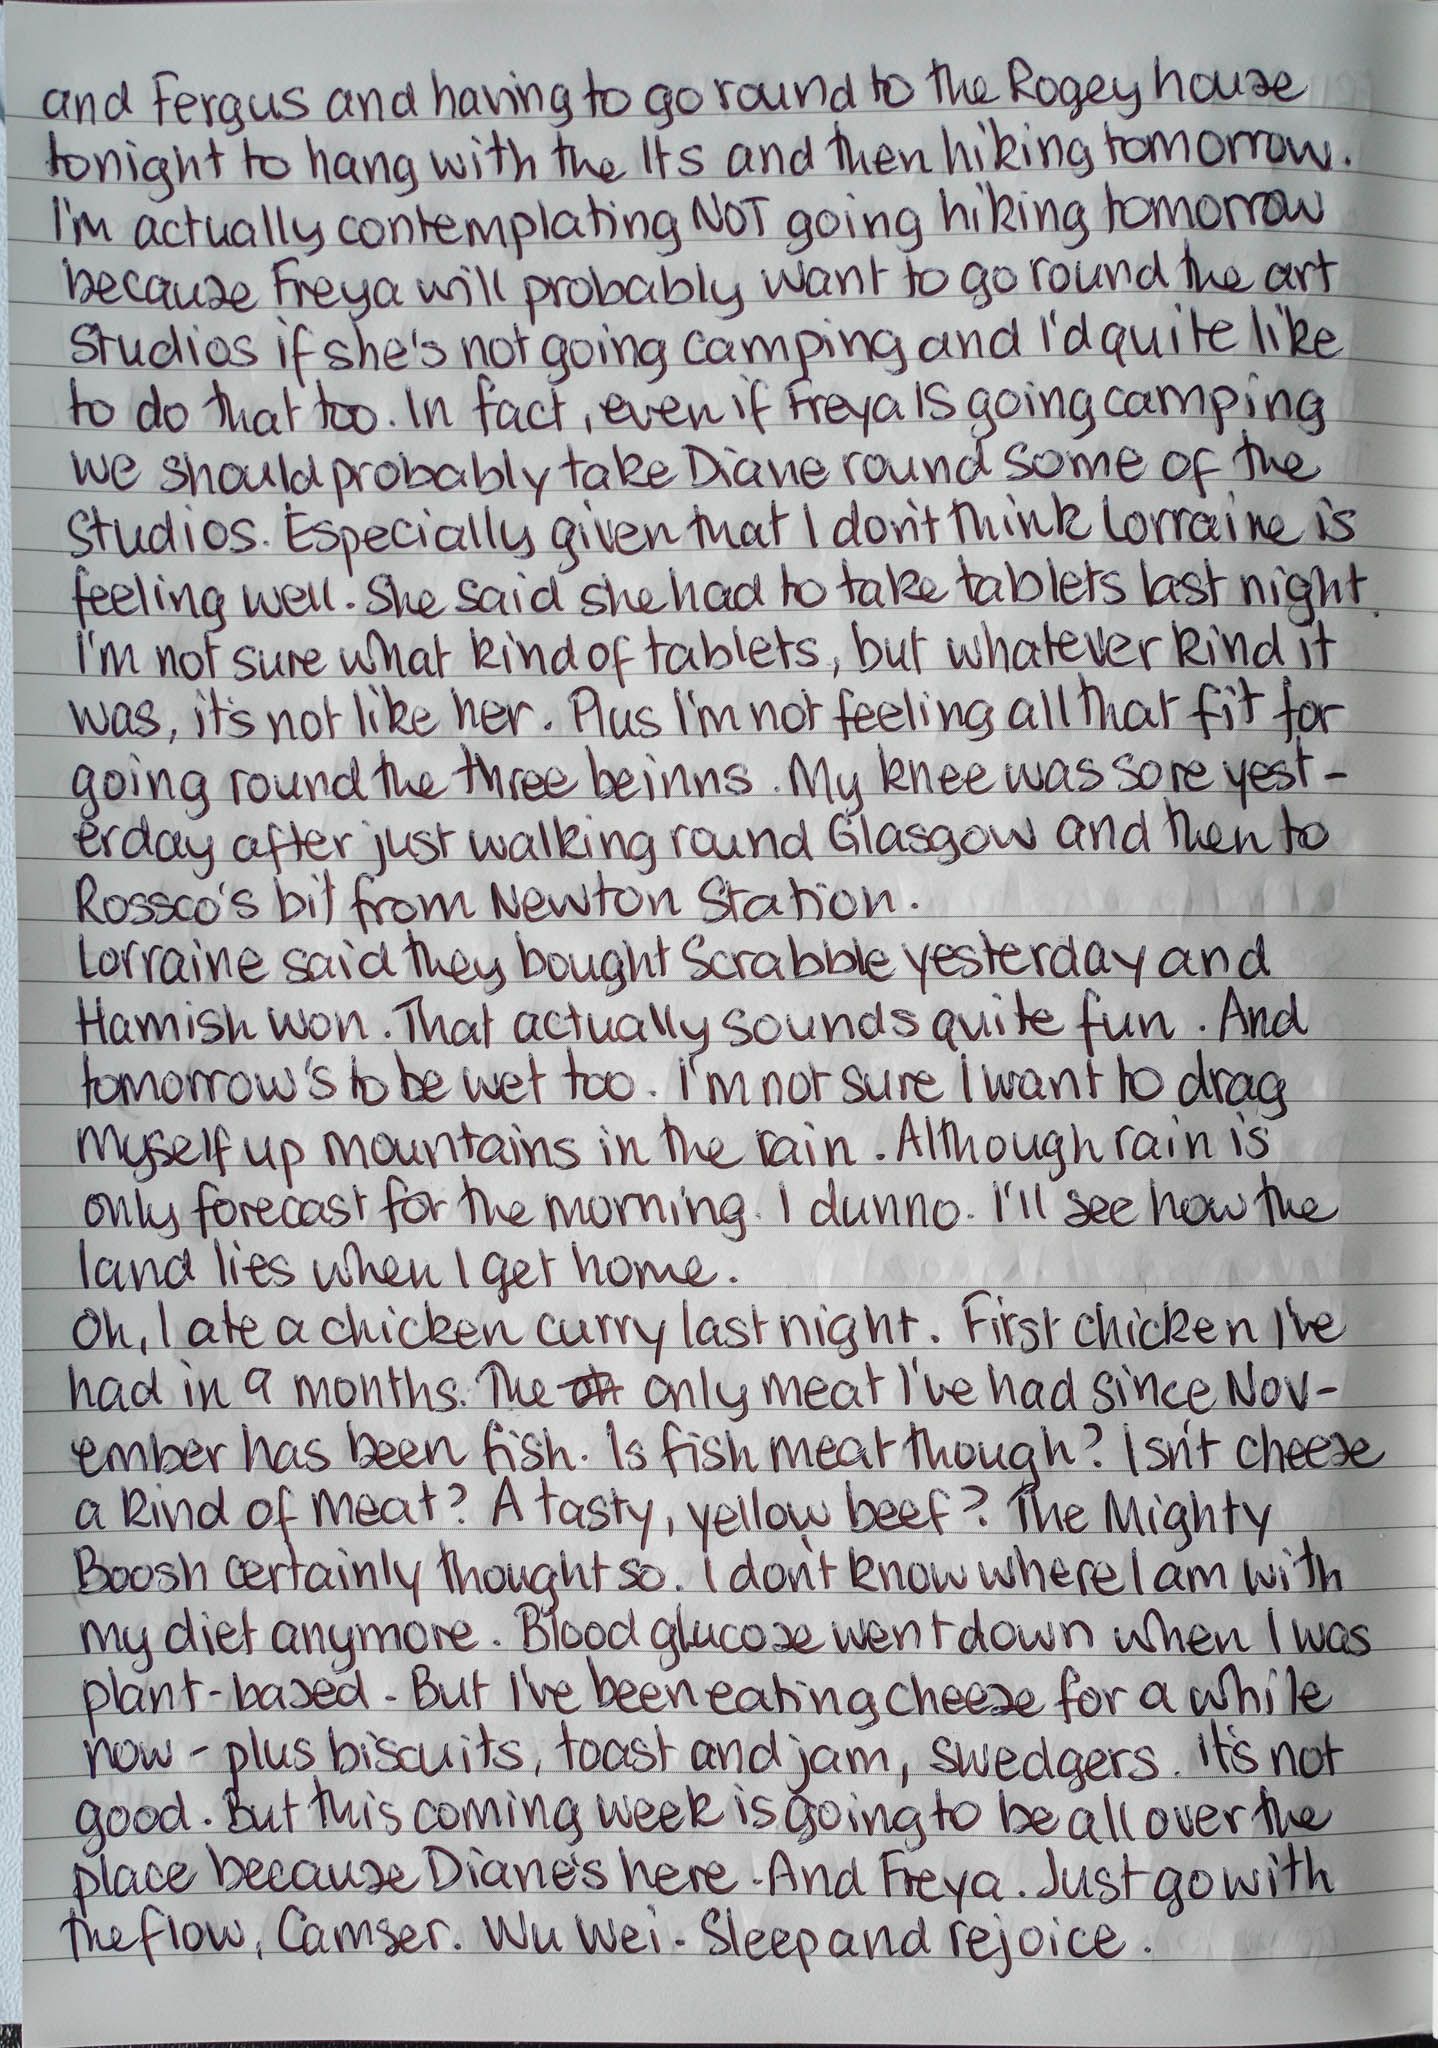 and Fergus and having to go round to the Rogey house
tonight to hang with the Its and then hiking tomorrow.
I'm actually contemplating NOT going hiking tomorrow
because Freya will probably want to go round the art
studios if she's not going camping and I'd quite like
to do that too. In fact, even if Freya IS going camping
we should probably take Diane round some of the
studios. Especially given that I don't think Lorraine is
feeling well. She said she had to take tablets last night.
I'm not sure what kind of tablets, but whatever kind it
was, it's not like her. Plus I'm not feeling all that fit for
going round the three beinns. My knee was sore yest-
erday after just walking round Glasgow and then to
Rossco's bit from Newton Station.
Lorraine said they bought Scrabble yesterday and
Hamish won. That actually sounds quite fun. And
tomorrow's to be wet too. I'm not sure I want to drag
myself up mountains in the rain. Although rain is
only forecast for the morning. I dunno. I'll see how the
land lies when I get home.
Oh, I ate a chicken curry last night. First chicken I've
had in 9 months. The only meat I've had since Nov-
ember has been fish. Is fish meat though? Isn't cheese
a kind of meat? A tasty, yellow beef? The Mighty
Boosh certainly thought so. I don't know where I am with
my diet anymore. Blood glucose went down when I was
plant-based. But I've been eating cheese for a while
now - plus biscuits, toast and jam, swedgers. It's not
good. But this coming week is going to be all over the
place because Diane's here. And Freya. Just go with
the flow, Camser. Wu Wei. Sleep and rejoice.